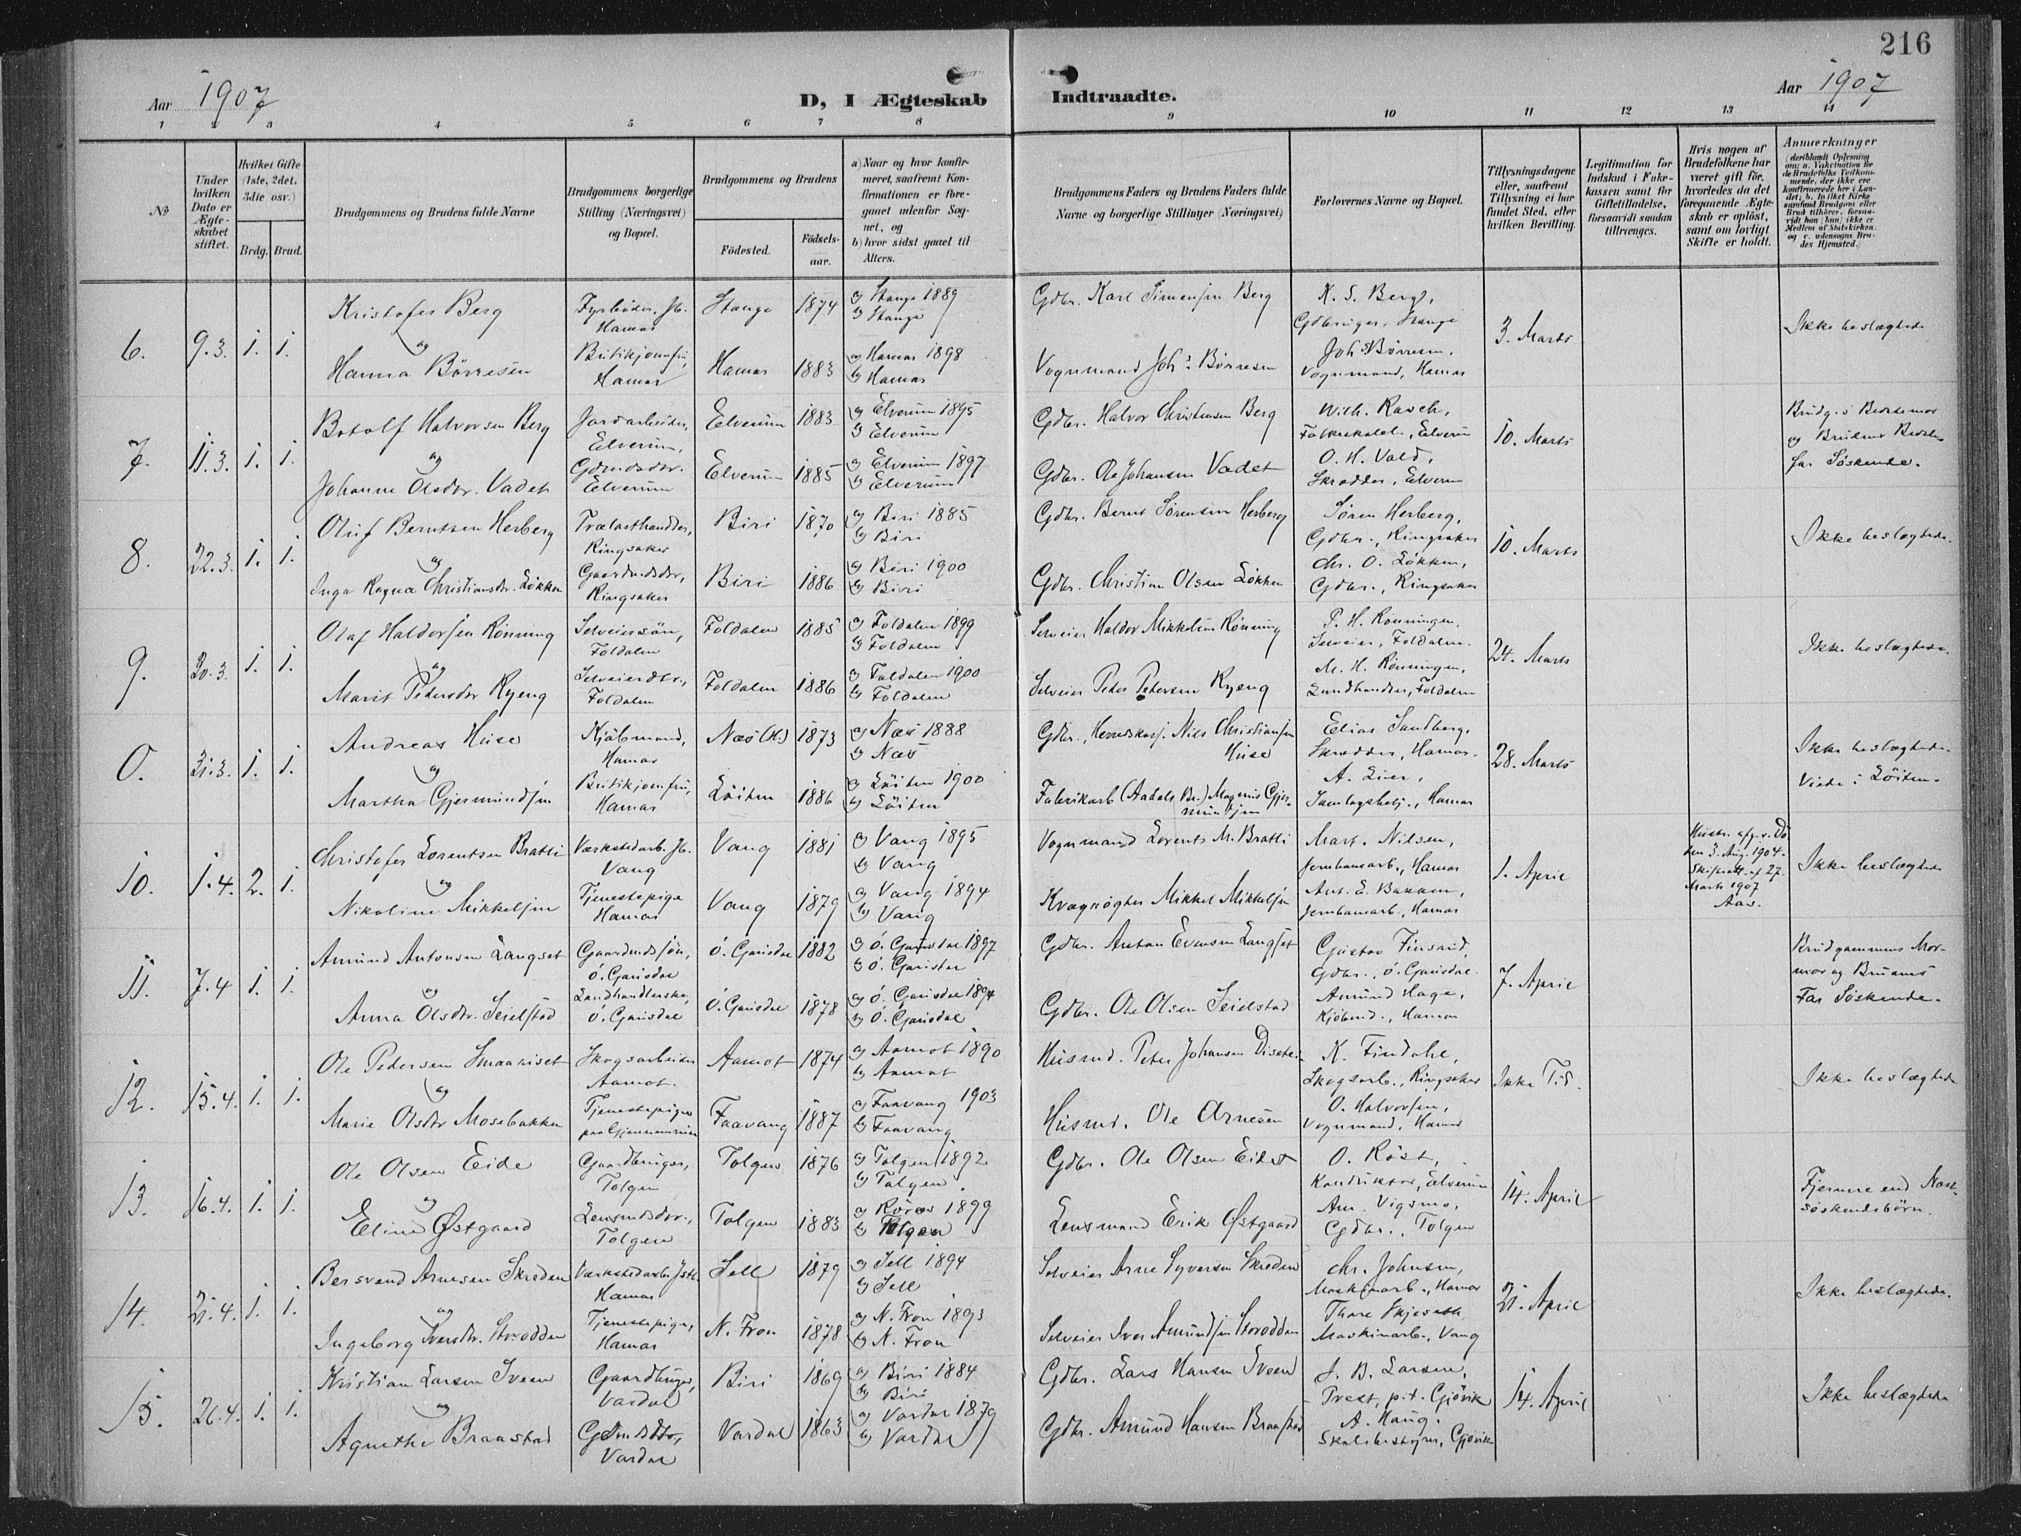 216
Aar 1907
D, I Ægteskab Indtraadte.
Aar 1907
1 2 3 4 5 6 7 8 9 10 11 12 13 14
No
Under hvilken Dato er Ægteskabet stiftet.
Hvilket Gifte (1ste, 2det, 3die osv.)
Brdg. Brud.
Brudgommens og Brudens fulde Navne
Brudgommens borgerlige Stilling (Næringsvei) og Bopæl.
Brudgommens og Brudens
Födested.
Födselsaar.
a) Naar og hvor konfirmeret, saafremt Konfirmationen er foregaaet udenfor Sognet, og
b) hvor sidst gaaet til Alters.
Brudgommens Faders og Brudens Faders fulde Navne og borgerlige Stillinger (Næringsvei)
Forlovernes Navne og Bopæl.
Tillysningsdagene eller, saafremt Tillysning ei har fundet Sted, efter hvilken Bevilling.
Legitimation for Indskud i Enkekassen samt for Giftetilladelse, forsaavidt saadan tiltrænges.
Hvis nogen af Brudefolkene har været gift för, hvorledes da det foregaaende Ægteskab er oplöst, samt om lovligt Skifte er holdt.
Anmerkninger
6. 9.3. 1. 1.
Kristofer Berg
og
Hanna Börresen
Fyrböder, Jb.
Hamar
Butikjomfru,
Hamar
Stange 1874
Hamar 1883
a) Stange 1889
b) Stange
a) Hamar 1898
b) Hamar
Gdbr. Karl Simensen Berg
Vognmand Johs. Börresen
K. S. Berg,
Gdbruger, Stange
Johs. Börresen,
Vognmand, Hamar
3. Marts
Ikke beslægtede
7. 11.3. 1. 1.
Botolf Halvorsen Berg
og
Johanne Olsdtr. Vadet
Jordarbeider,
Elverum,
Gdmdsdtr.
Elverum
Elverum 1883
Elverum 1885
a) Elverum 1895
b) Elverum
a) Elverum 1897
b) Elverum
Gdbr. Halvor Christensen Berg
Gdbr. Ole Johansen Vadet
Wilh. Rasch,
Elverum
O. H. Vald,
Skrædder, Elverum
10. Marts
Brudg.s Bestemor
og Brudens Beste-
far Söskende.
8. 22.3. 1. 1.
Oluf Berntsen Herberg
og
Inga Ragna Christiansdtr. Lökken
Trælasthandler,
Ringsaker
Gaardmdsdtr,
Ringsaker
Biri 1870
Biri 1886
a) Biri 1885
b) Biri
a) Biri 1900
b) Biri
Gdbr. Bernt Sörensen Herberg
Gdbr. Christian Olsen Lökken
Sören Herberg,
Gdbr., Ringsaker
Chr. O. Lökken,
Gdbr., Ringsaker
10. Marts
Ikke beslægtede.
9. 30.3. 1. 1.
Olaf Haldorsen Rönning
og
Marit Pedersdtr Ryeng
Selveiersön,
Foldalen
Selveierdtr,
Foldalen
Foldalen 1885
Foldalen 1886
a) Foldalen 1899
b) Foldalen
a) Foldalen 1900
b) Foldalen
Selveier Haldor Mikkelsen Rönning
Selveier Peder Pedersen Ryeng
P. H. Rönningen,
Selveier, Foldalen.
M. H. Rönningen,
Landhandler, Foldalen
24. Marts
Ikke beslægtede.
0. 31.3. 1. 1.
Andreas Huse
og
Martha Gjermundsen
Kjöbmand,
Hamar
Butikjomfru,
Hamar
Næs (H.) 1873
Löiten 1886
a) Næs 1888
b) Næs
a) Löiten 1900
b) Löiten
Gdbr., Herredskasj. Nils Christiansen
Huse
Fabrikarb (Aadals Br.) Magnus Gjer-
mundsen
Elias Sandberg,
Skrædder, Hamar.
A. Lier,
Hamar
28. Marts
Ikke beslægtede.
Viede i Löiten.
10. 1.4. 2. 1.
Christofer Lorentsen Bratli
og
Nikoline Mikkelsen
Værkstedarb. Jb.
Vang
Tjenestepige
Hamar
Vang 1881
Vang 1879
a) Vang 1895
b) Vang
a) Vang 1894
b) Vang
Vognmand Lorents M. Bratli
Kvægrögter Mikkel Mikkelsen
Mart. Nilsen,
Jernbanearb., Hamar
Ant. E. Bakken,
Jernbanearb., Hamar
1. April
Hustr. afg. v. Dö
den 3. Aug. 1904.
Skifteatt. af 27.
Marts 1907
Aas.
Ikke beslægtede
11. 7.4 1. 1.
Amund Antonsen Langset
og
Anna Olsdtr. Seielstad
Gaardmdssön,
Ö. Gausdal
Landhandlerske,
Ö. Gausdal
Ö. Gausdal 1882
Ö. Gausdal 1878
a) Ö. Gausdal 1897
b) Ö. Gausdal
a) Ö. Gausdal 1894
b) Ö. Gausdal
Gdbr. Anton Evensen Langset
Gdbr. Ole Olsen Seielstad
Gustav Finsrud,
Gdbr., Ö. Gausdal.
Amund Hage,
Kjöbmd., Hamar
7. April
Brudgommens Mor-
mor og Brudens
Far Söskende.
12. 15.4. 1. 1.
Ole Pedersen Smaariset
og
Marie Olsdtr Mosebakken
Skogsarbeider
Aamot.
Tjenestepige
Aamot 1874
Faavang 1887
a) Aamot 1890
b) Aamot
a) Faavang 1903
b) Faavang
Husmd. Peter Johansen
Husmd. Ole Arnesen
K. Findahl,
Skogsarb., Ringsaker
O. Halvorsen,
Vognmand, Hamar
Ikke T.S.
Ikke beslægtede
13. 16.4. 1. 1.
Ole Olsen Eide
og
Eline Østgaard
Gaardbruger,
Tolgen
Lensmdsdtr.,
Tolgen
Tolgen 1876
Tolgen 1883
a) Tolgen 1892
b) Tolgen.
a) Röros 1899
b) Tolgen
Gdbr. Ole Olsen Eidet
Lensmand Erik Østgaard
O. Röst,
Konduktör, Elverum
Am. Vigsmo,
Gdbr., Tolgen
14. April
Fjernere end Næst-
söskendebörn.
14. 21.4. 1. 1.
Bersvend Arnesen Skreden
og
Ingeborg Iversdtr. Storodden
Værkstedarb. Jstb.
Hamar
Tjenestepige,
Hamar
Sell 1879
N. Fron 1878
a) Sell 1894
b) Sell
a) N. Fron 1893
b) N. Fron
Selveier Arne Syversen Skreden
Selveier Iver Amundsen Storodden
Chr. Johnsen,
Maskinarb., Hamar
Thore Skjeseth
Maskinarb., Vang
21. April
Ikke beslægtede.
15. 26.4. 1. 1.
Kristian Larsen Sveen
og
Agnethe Braastad
Gaardbruger,
Vardal
Gdmdsdtr,
Vardal
Biri 1869
Vardal 1863
a) Biri 1884
b) Biri
a) Vardal 1879
b) Vardal
Gdbr. Lars Hansen Sveen
Gdbr. Amund Hansen Braastad
J. B. Larsen,
Prest, p.t. Gjövik
A. Haug.
Skolebestyrer, Gjövik
14. April
Ikke beslægtede